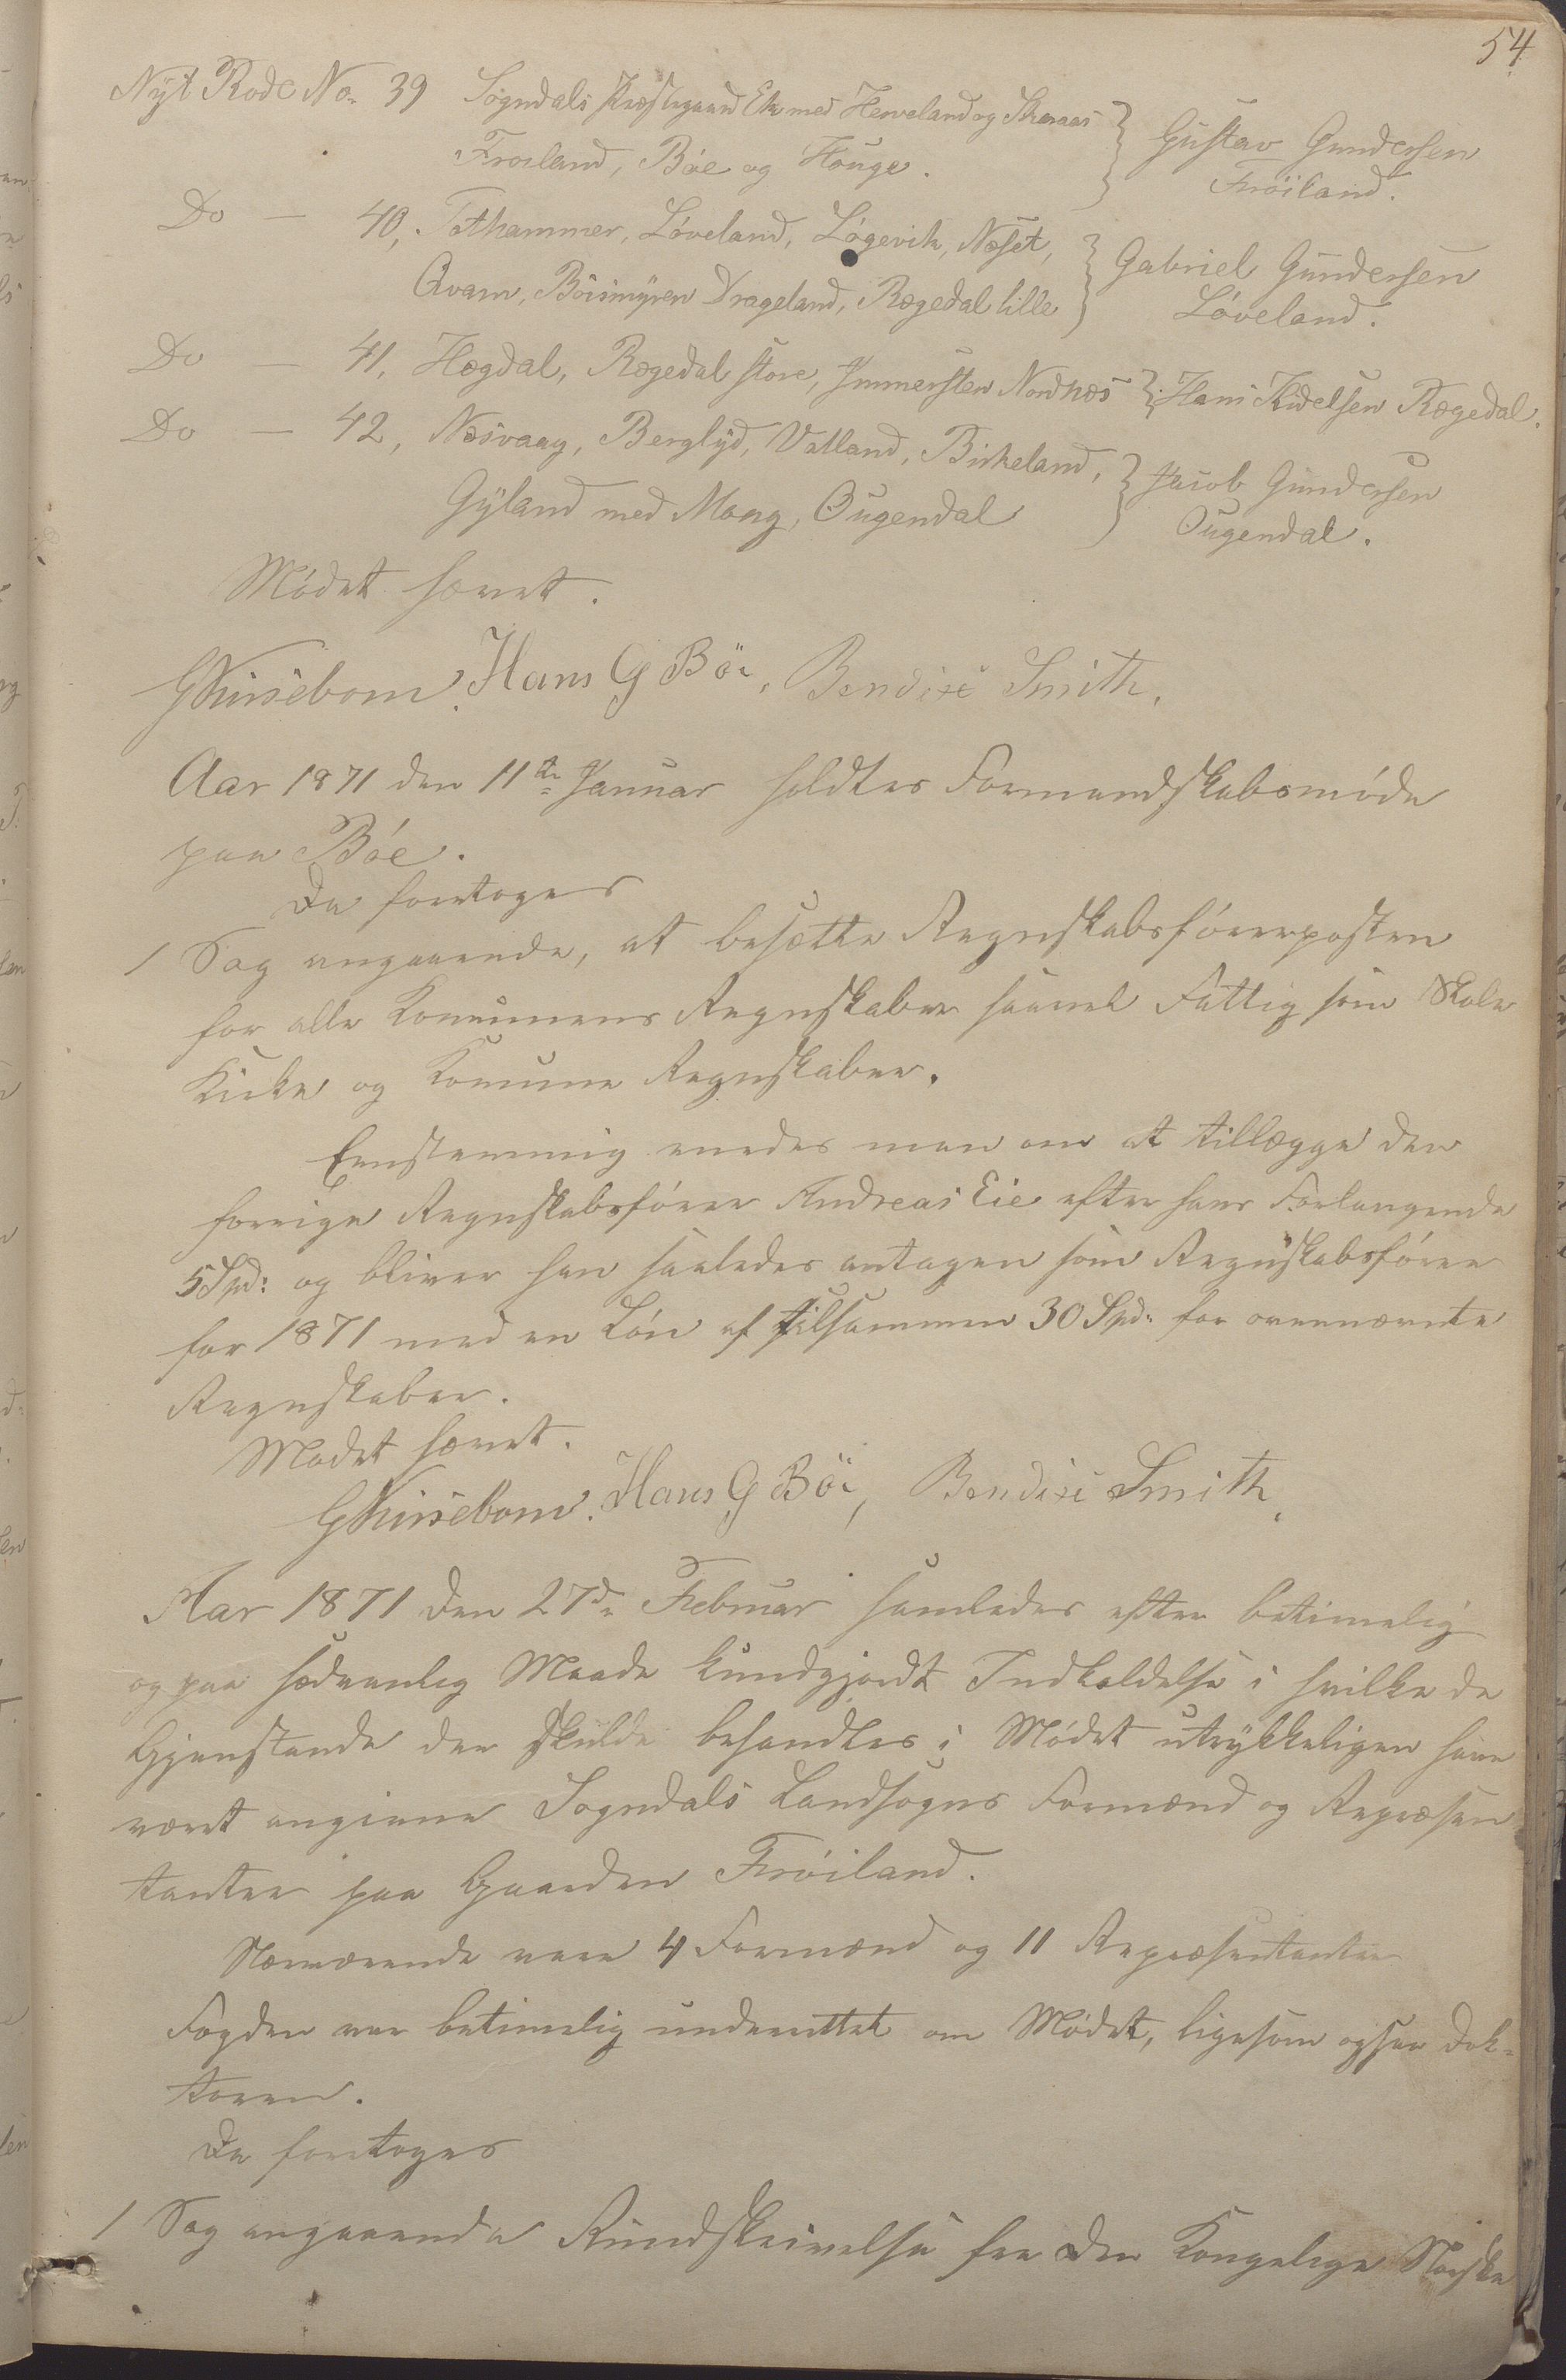 54
Nyt Rode No. 39 Sogndals Præstegaard Eie med Herveland og Skaraas } Gustav Gundersen
Froiland, Böe og Houge. Fröiland.
Do — 40, Tothammer, Löveland, Lögevik, Næset, } Gabriel Gundersen
Qvam, Böismyren Drageland, Rægedal lille Löveland.
Do — 41, Hægdal, Rægedal store, Immersten Nordnæs } Hans Kidelsen Rægedal.
Do — 42, Næsvaag, Berglyd, Vatland, Birkeland, } Jacob Gundersen
Gyland med Mong, Ougendal Ougendal.
Mödet hævet.
Hans G Böe, Bendix Smith,
Aar 1871 den 11te Januar holdtes Formandskabsmöde
paa Böe.
Da foretoges
1 Sag angaaende, at besætte Regnskabsförerposten
for alle Komunens Regnskaber saavel Fattig som Skole
Kirke og Komune Regnskaber.
Eenstemmig enedes man om at tillægge den
forrige Regnskabsförer Andreas Eie efter hans Forlangende
5 Spd: og bliver han saaledes antagen som Regnskabsförer
for 1871 med en Lön af tilsammen 30 Spd: for ovennævnte
Regnskaber.
Mödet hævet.
Hans G Böe, Bendix Smith,
Aar 1871 den 27de Februar samledes efter betimelig
og paa sædvanlig Maade kundgjordt Indkaldelse i hvilke de
Gjenstande der skulde behandles i Mödet utrykkeligen have
været angivne Sogndals Landsogns Formænd og Repræsen
tanter paa Gaarden Fröiland.
Nærværende vare 4 Formænd og 11 Repræsentanter
Fogden var betimelig underrettet om Mödet, ligesom ogsaa Dok-
toren.
Da foretoges
1 Sag angaaende Rundskrivelse fra Den Kongelige Norske